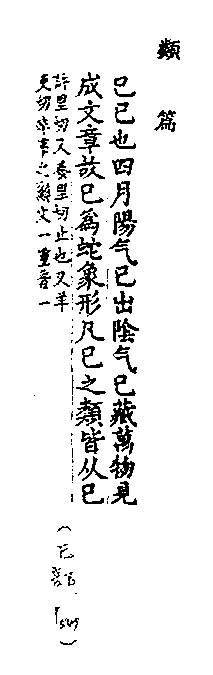 類篇
巳巳也四月陽气巳出陰气巳藏萬物見
成文章故巳為蛇象形凡巳之類皆从巳
詳里切又養里切止也又羊
吏切卒事之辭文一重音一